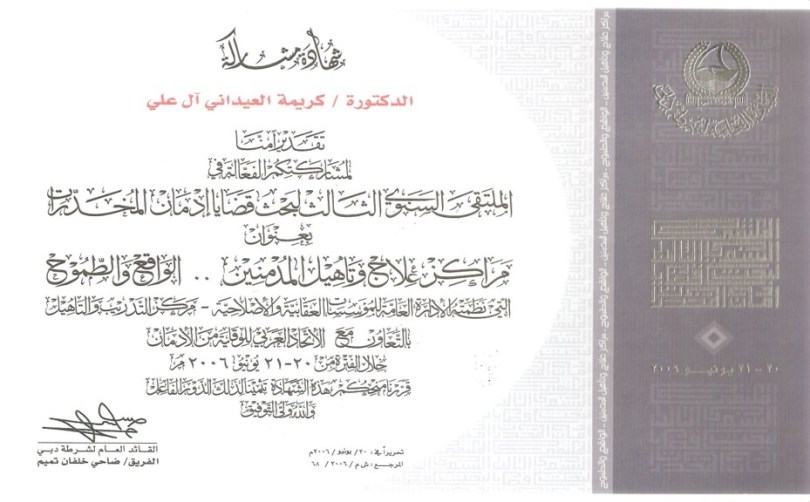 شهادة مشاركة
الدكتورة / كريمة العيداني آل علي
تقديراً منا
لمشاركتكم الفعالة في
الملتقى السنوي الثالث لبحث قضايا إدمان المخدرات
بعنوان
مراكز علاج وتأهيل المدمنين .. الواقع والطموح
التي نظمته الإدارة العامة للمؤسسات العقابية والإصلاحية - مركز التدريب والتأهيل
بالتعاون مع الاتحاد العربي للوقاية من الأدمان
خلال الفترة من ٢٠-٢١ يونيو ٢٠٠٦ م
قررنا منحكم هذه الشهادة تقديراً لذلك الدور الفاعل
والله ولي التوفيق
القائد العام لشرطة دبي
الفريق/ ضاحي خلفان تميم
تحريراً في: ٢٠/ يونيو /٢٠٠٦م
المرجع: ش م / ٢٠٠٦ / ٦٨
مراكز علاج وتأهيل المدمنين .. الواقع والطموح
٢٠ - ٢١ يونيو ٢٠٠٦